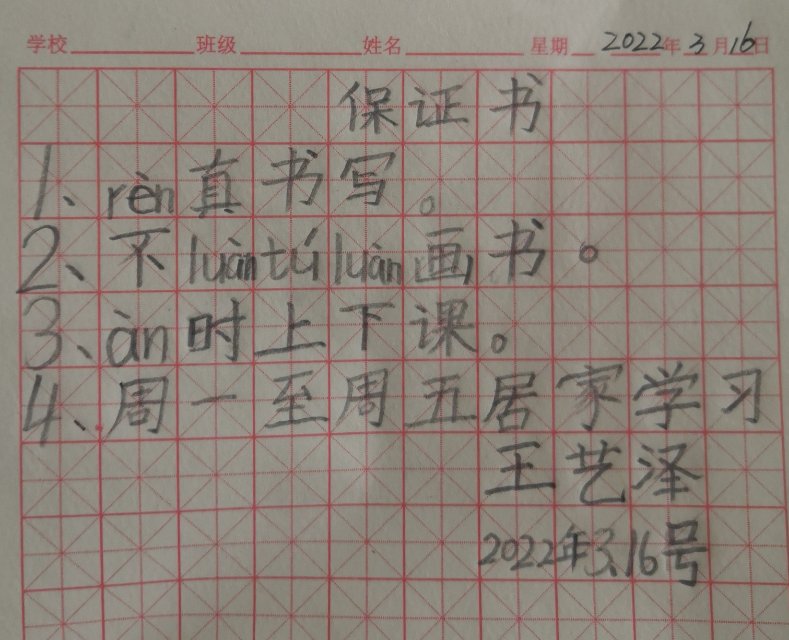 学校 班级 姓名 星期 2022年3月16日
保证书
1、rèn真书写。
2、不luàntúluàn画书。
3、àn时上下课。
4、周一至周五居家学习
王艺泽
2022年3.16号